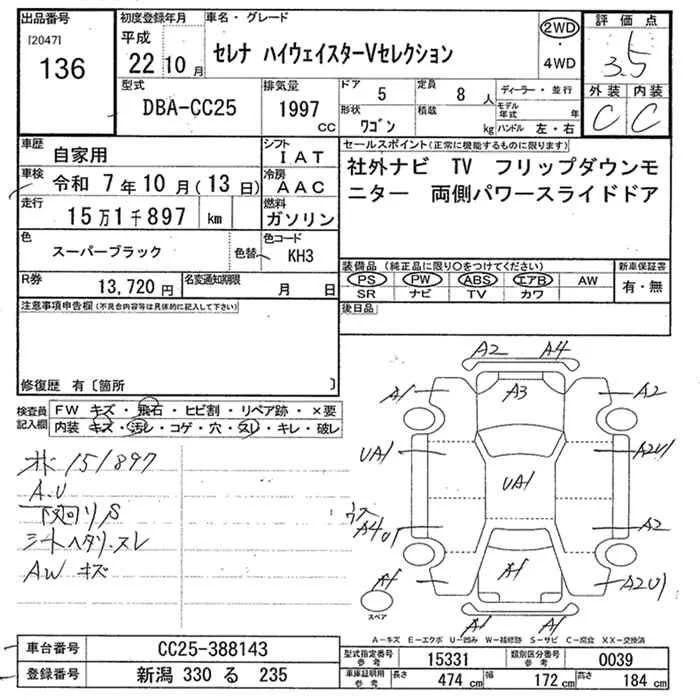 出品番号
[2047]
136
初度登録年月
平成
22年10月
車名・グレード
セレナ ハイウェイスターVセレクション
2WD
・
4WD
評価点
3.5
外装 内装
C C
型式
DBA-CC25
排気量
1997
CC
ドア 5
定員 8 人
形状 ワゴン
積載 kg
ディーラー・並行
モデル年式 年
ハンドル 左・右
車歴
自家用
シフト
IAT
車検
令和 7年10月(13日)
冷房
AAC
走行
15万1千897 km
燃料
ガソリン
色
スーパーブラック
色替
色コード
KH3
R券
13,720円
名変通知期限
月 日
セールスポイント(正常に機能するものに限ります)
社外ナビ TV フリップダウンモ
ニター 両側パワースライドドア
装備品 (純正品に限り○をつけてください)
PS PW ABS エアB AW
SR ナビ TV カワ
新車保証書
有・無
後日品
注意事項申告欄(不具合内容等は具体的に記入して下さい)
修復歴 有〔箇所 〕
検査員
記入欄
FW キズ・飛石・ヒビ割・リペア跡・×要
内装 キズ・汚レ・コゲ・穴・スレ・キレ・破レ
151897
A.U
下廻りS
シートヘタリ.スレ
AW キズ
A2 A4
A1 A3 A2
UA1 UA1 A2U1
A4U1 A2
A1 A1 A2U1
A1 A1
スペア
A-キズ E-エクボ U-凹み W-補修跡 S-サビ C-腐食 XX-交換済
車台番号
CC25-388143
登録番号
新潟 330 る 235
型式指定番号
参考
15331
類別区分番号
参考
0039
車庫証明用
参考
長さ 474 cm
幅 172 cm
高さ 184 cm